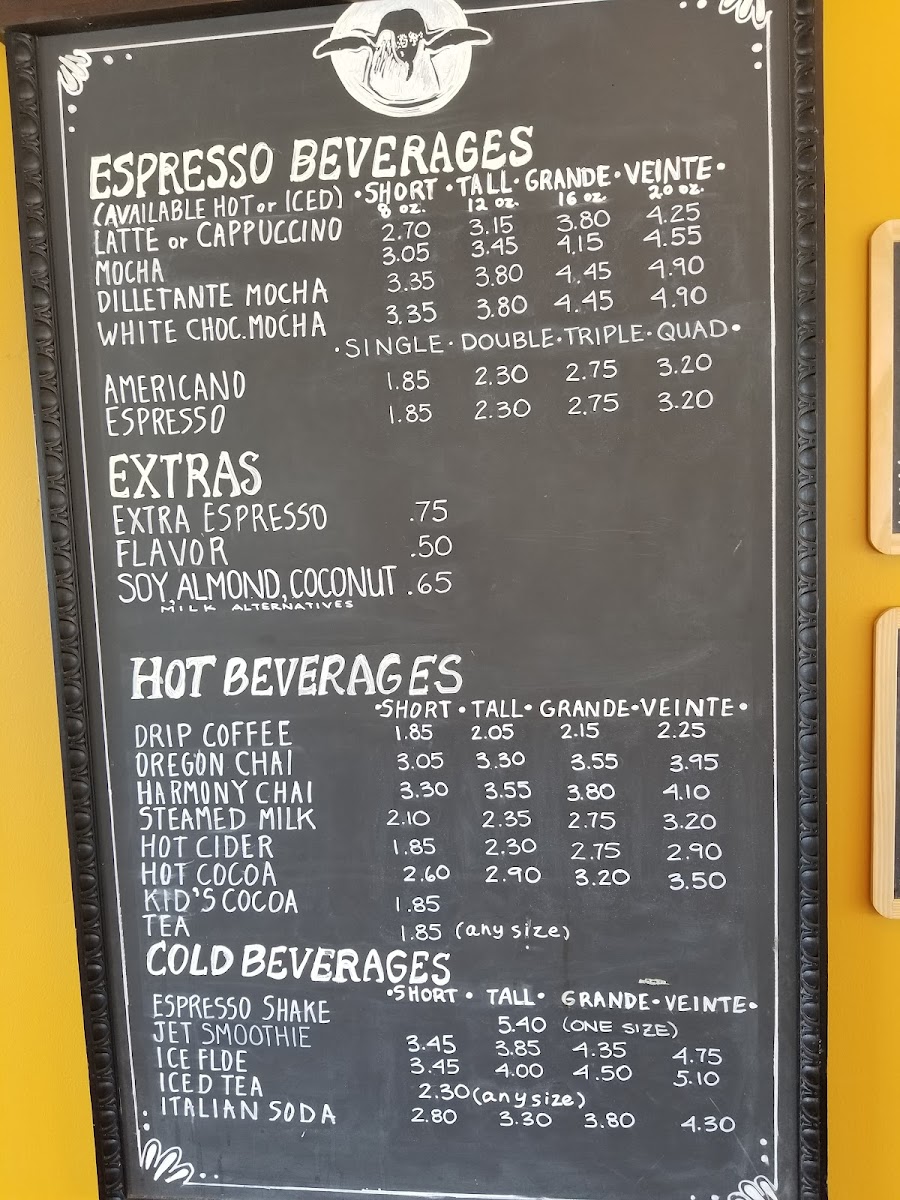 ESPRESSO BEVERAGES
(AVAILABLE HOT or ICED) •SHORT •TALL• GRANDE• VEINTE•
8 oz. 12 oz. 16 oz. 20 oz.
LATTE or CAPPUCCINO 2.70 3.15 3.80 4.25
MOCHA 3.05 3.45 4.15 4.55
DILLETANTE MOCHA 3.35 3.80 4.45 4.90
WHITE CHOC. MOCHA 3.35 3.80 4.45 4.90
•SINGLE• DOUBLE•TRIPLE•QUAD•
AMERICANO 1.85 2.30 2.75 3.20
ESPRESSO 1.85 2.30 2.75 3.20
EXTRAS
EXTRA ESPRESSO .75
FLAVOR .50
SOY, ALMOND, COCONUT .65
MILK ALTERNATIVES
HOT BEVERAGES
•SHORT • TALL• GRANDE•VEINTE•
DRIP COFFEE 1.85 2.05 2.15 2.25
OREGON CHAI 3.05 3.30 3.55 3.95
HARMONY CHAI 3.30 3.55 3.80 4.10
STEAMED MILK 2.10 2.35 2.75 3.20
HOT CIDER 1.85 2.30 2.75 2.90
HOT COCOA 2.60 2.90 3.20 3.50
KID'S COCOA 1.85
TEA 1.85 (any size)
COLD BEVERAGES
•SHORT • TALL• GRANDE•VEINTE•
ESPRESSO SHAKE 5.40 (ONE SIZE)
JET SMOOTHIE 3.45 3.85 4.35 4.75
ICE FLOE 3.45 4.00 4.50 5.10
ICED TEA 2.30 (any size)
ITALIAN SODA 2.80 3.30 3.80 4.30